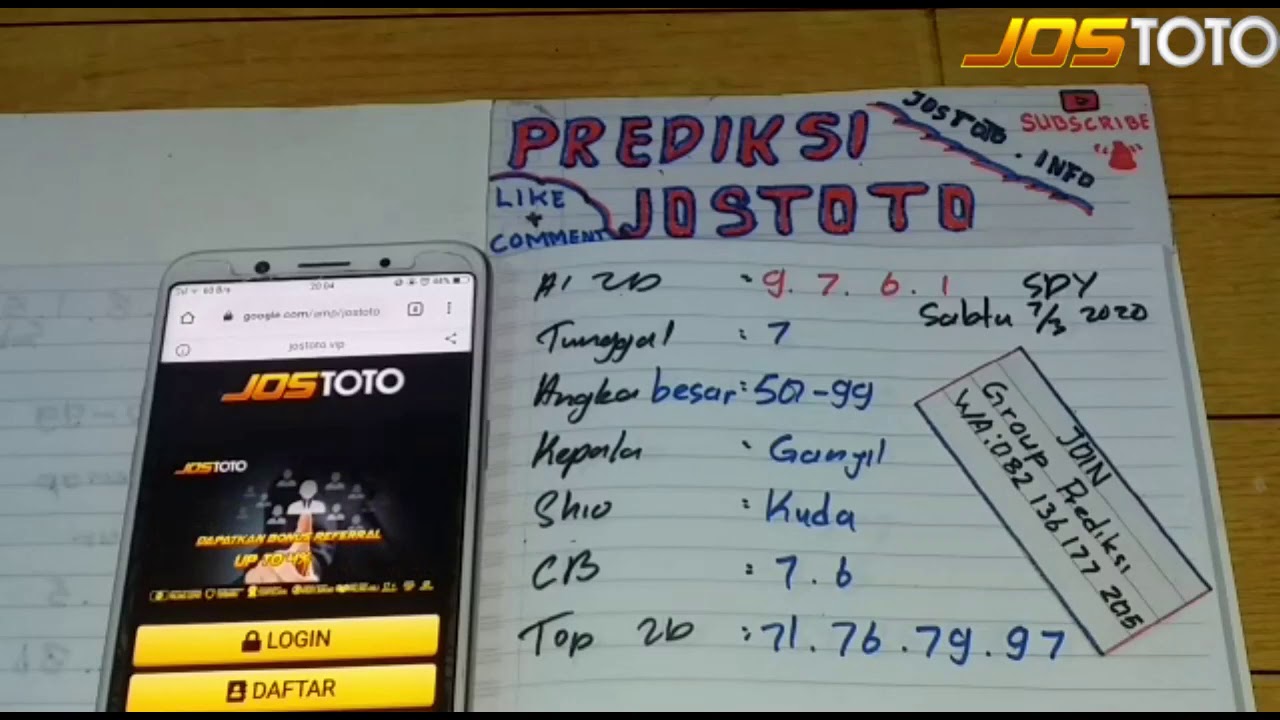 JOSTOTO
PREDIKSI
JOSTOTO
JOSTOTO.INFO
SUBSCRIBE
LIKE
+
COMMENT
AI 2D : 9. 7. 6. 1
SDY
Sabtu 7/3 2020
Tunggal : 7
Angka besar : 50-99
Kepala : Ganjil
Shio : Kuda
CB : 7. 6
Top 2D : 71. 76. 79. 97
JOIN
Group Prediksi
WA: 082 136 177 205
20.04
google.com/amp/jostoto
jostoto.vip
JOSTOTO
JOSTOTO
DAPATKAN BONUS REFERRAL
UP TO 4X
LOGIN
DAFTAR